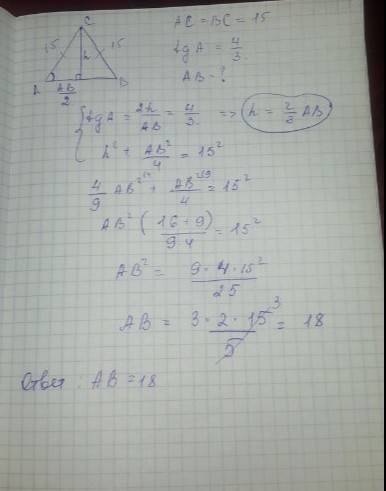 C
AC = BC = 15
15 h 15
tg A = 4/3
A AB/2 B
AB - ?
{ tg A = 2h/AB = 4/3 => h = 2/3 AB
h² + AB²/4 = 15²
4/9 AB² + AB²/4 = 15²
AB² ( (16+9)/(9·4) ) = 15²
AB² = (9·4·15²)/25
AB = (3·2·15)/5 3 = 18
Ответ : AB = 18